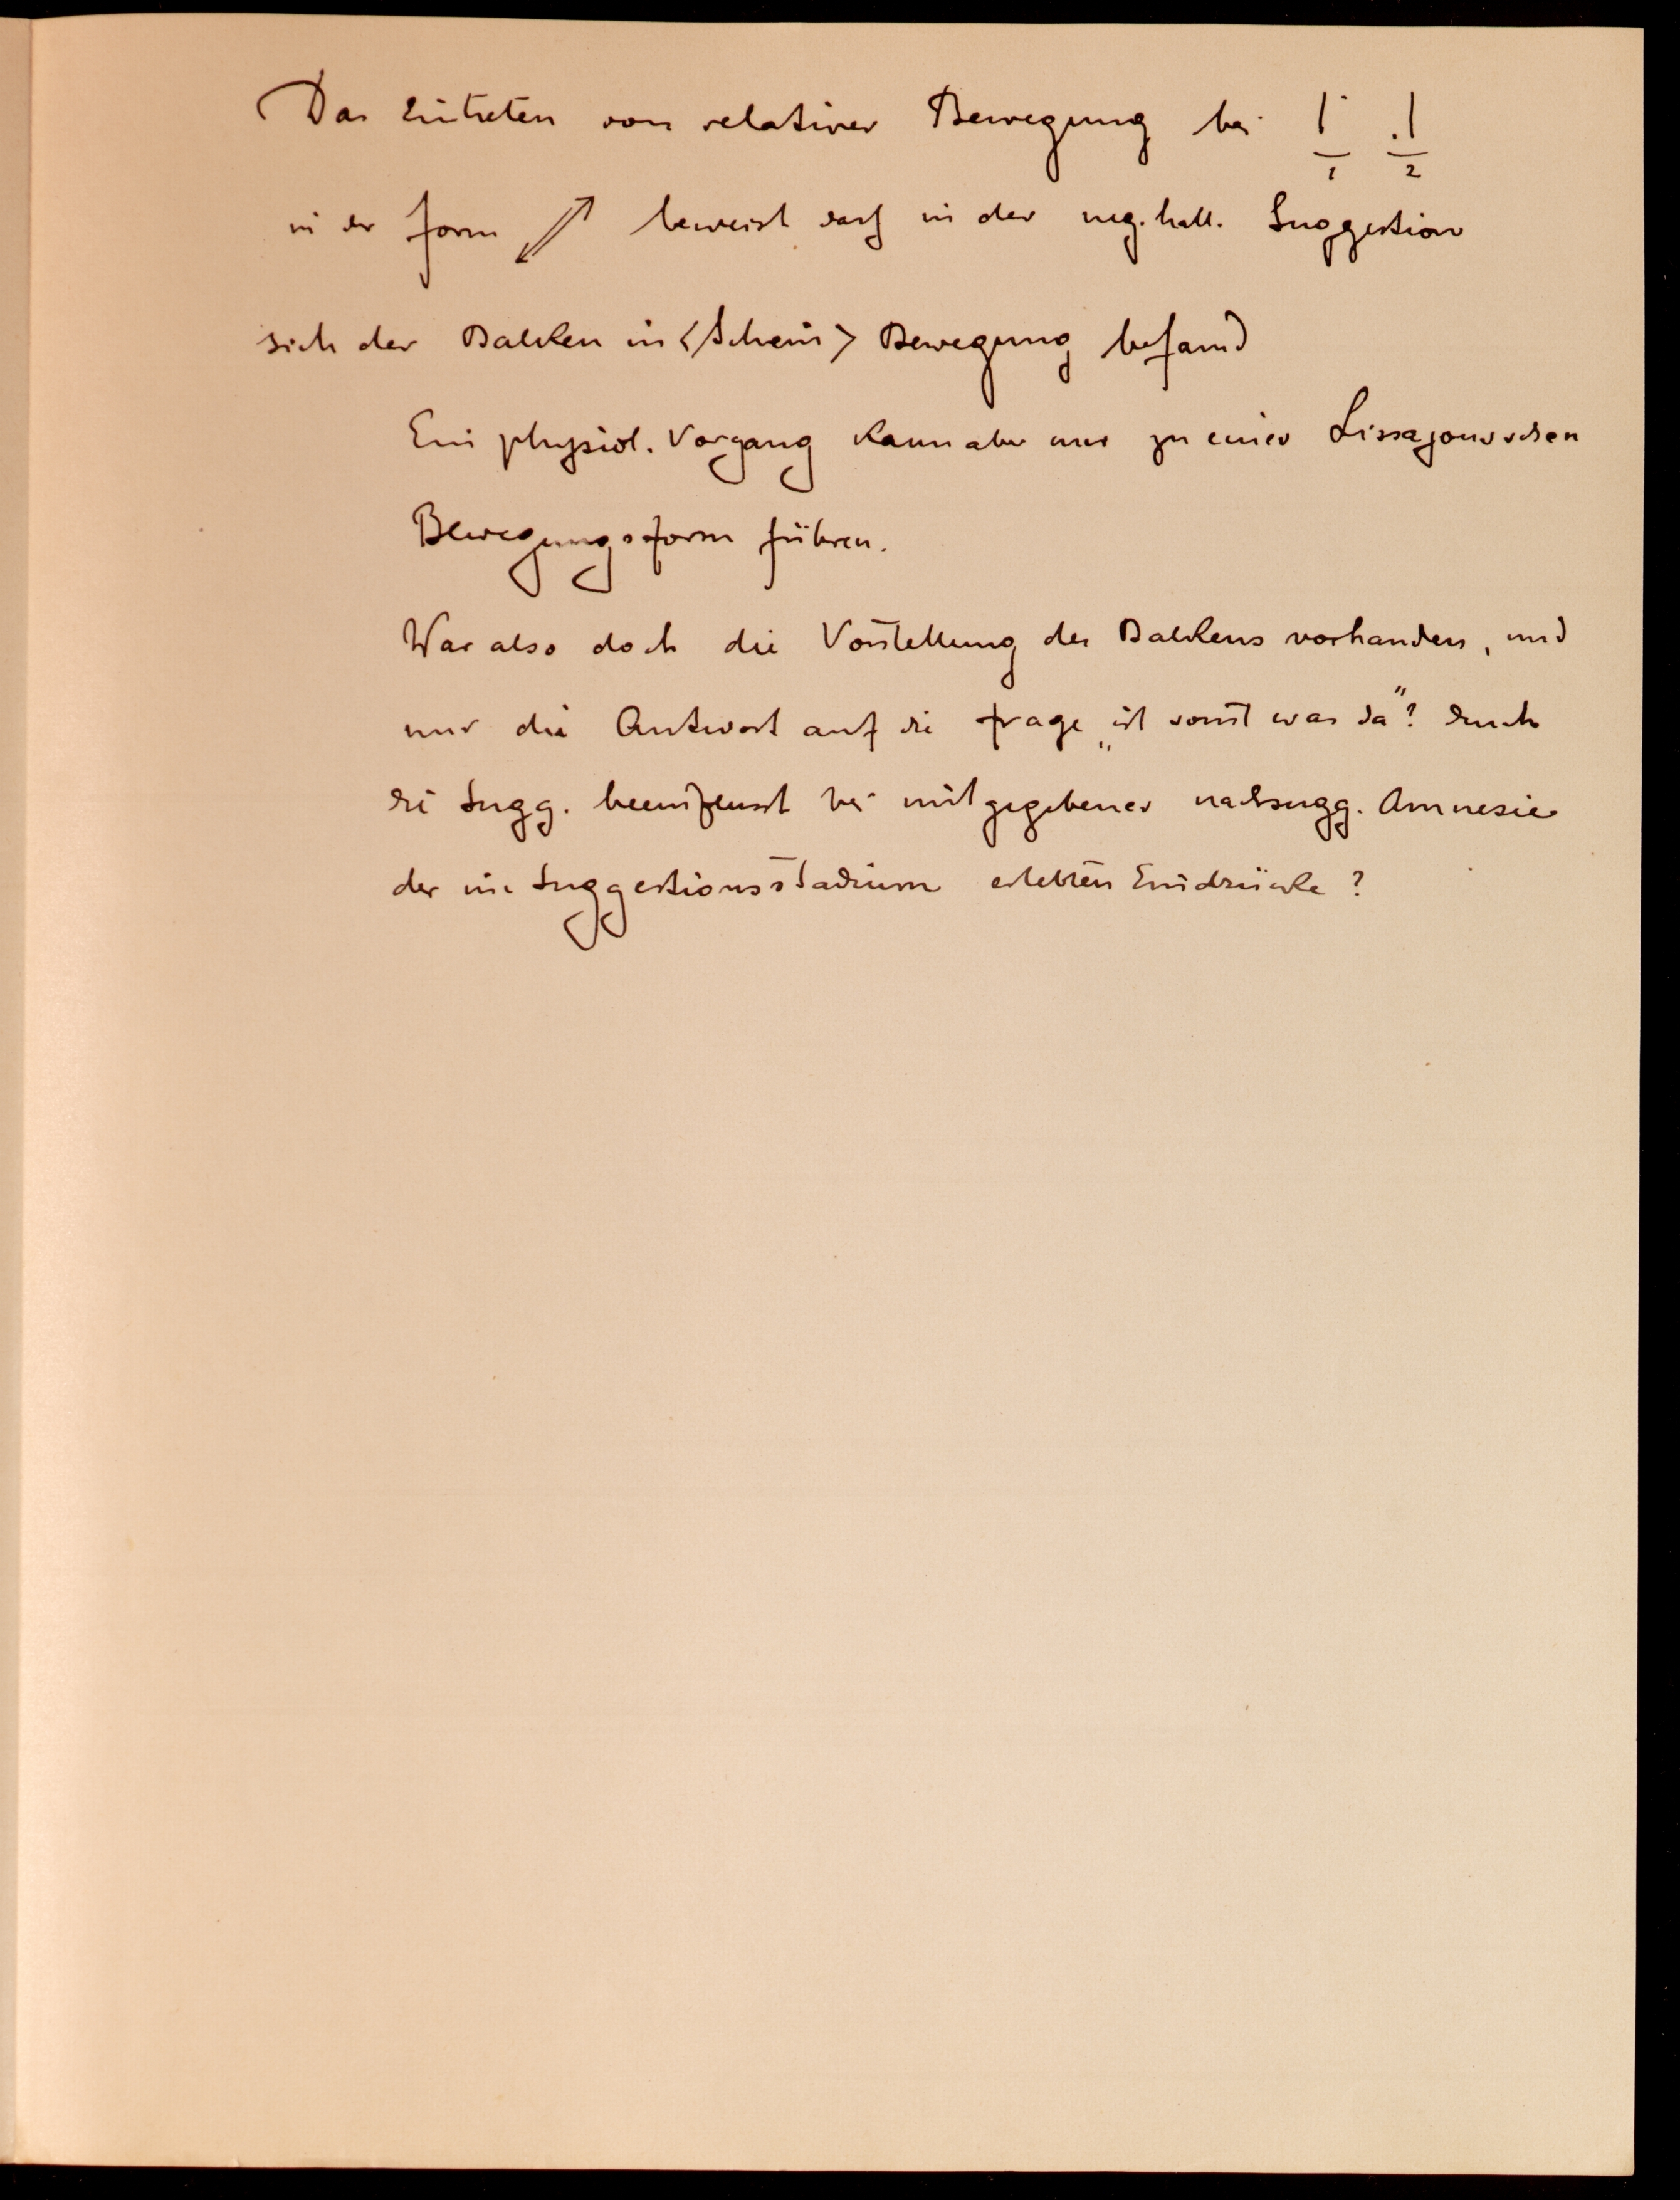 Das Eintreten von relativer Bewegung bei |˙ .|
1 2
in der Form ↙↗ beweist dass in der neg. hall. Suggestion
sich der Balken in <Schein> Bewegung befand
Ein physiol. Vorgang kann aber nur zu einer Lissajousschen
Bewegungsform führen.
War also doch die Vorstellung des Balkens vorhanden, und
nur die Antwort auf die Frage „ist sonst was da"? durch
die Sugg. beeinflusst bei mitgegebener nachsugg. Amnesie
der im Suggestionsstadium erlebten Eindrücke?